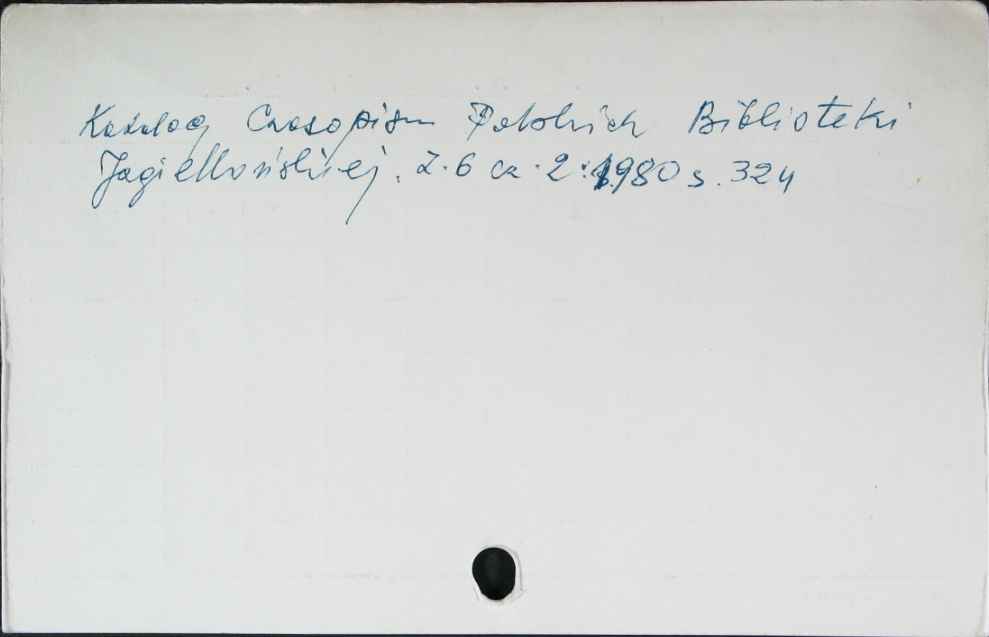 Katalog Czasopism Polskich Biblioteki
Jagiellońskiej. Z. 6 cz. 2: 1980 s. 324